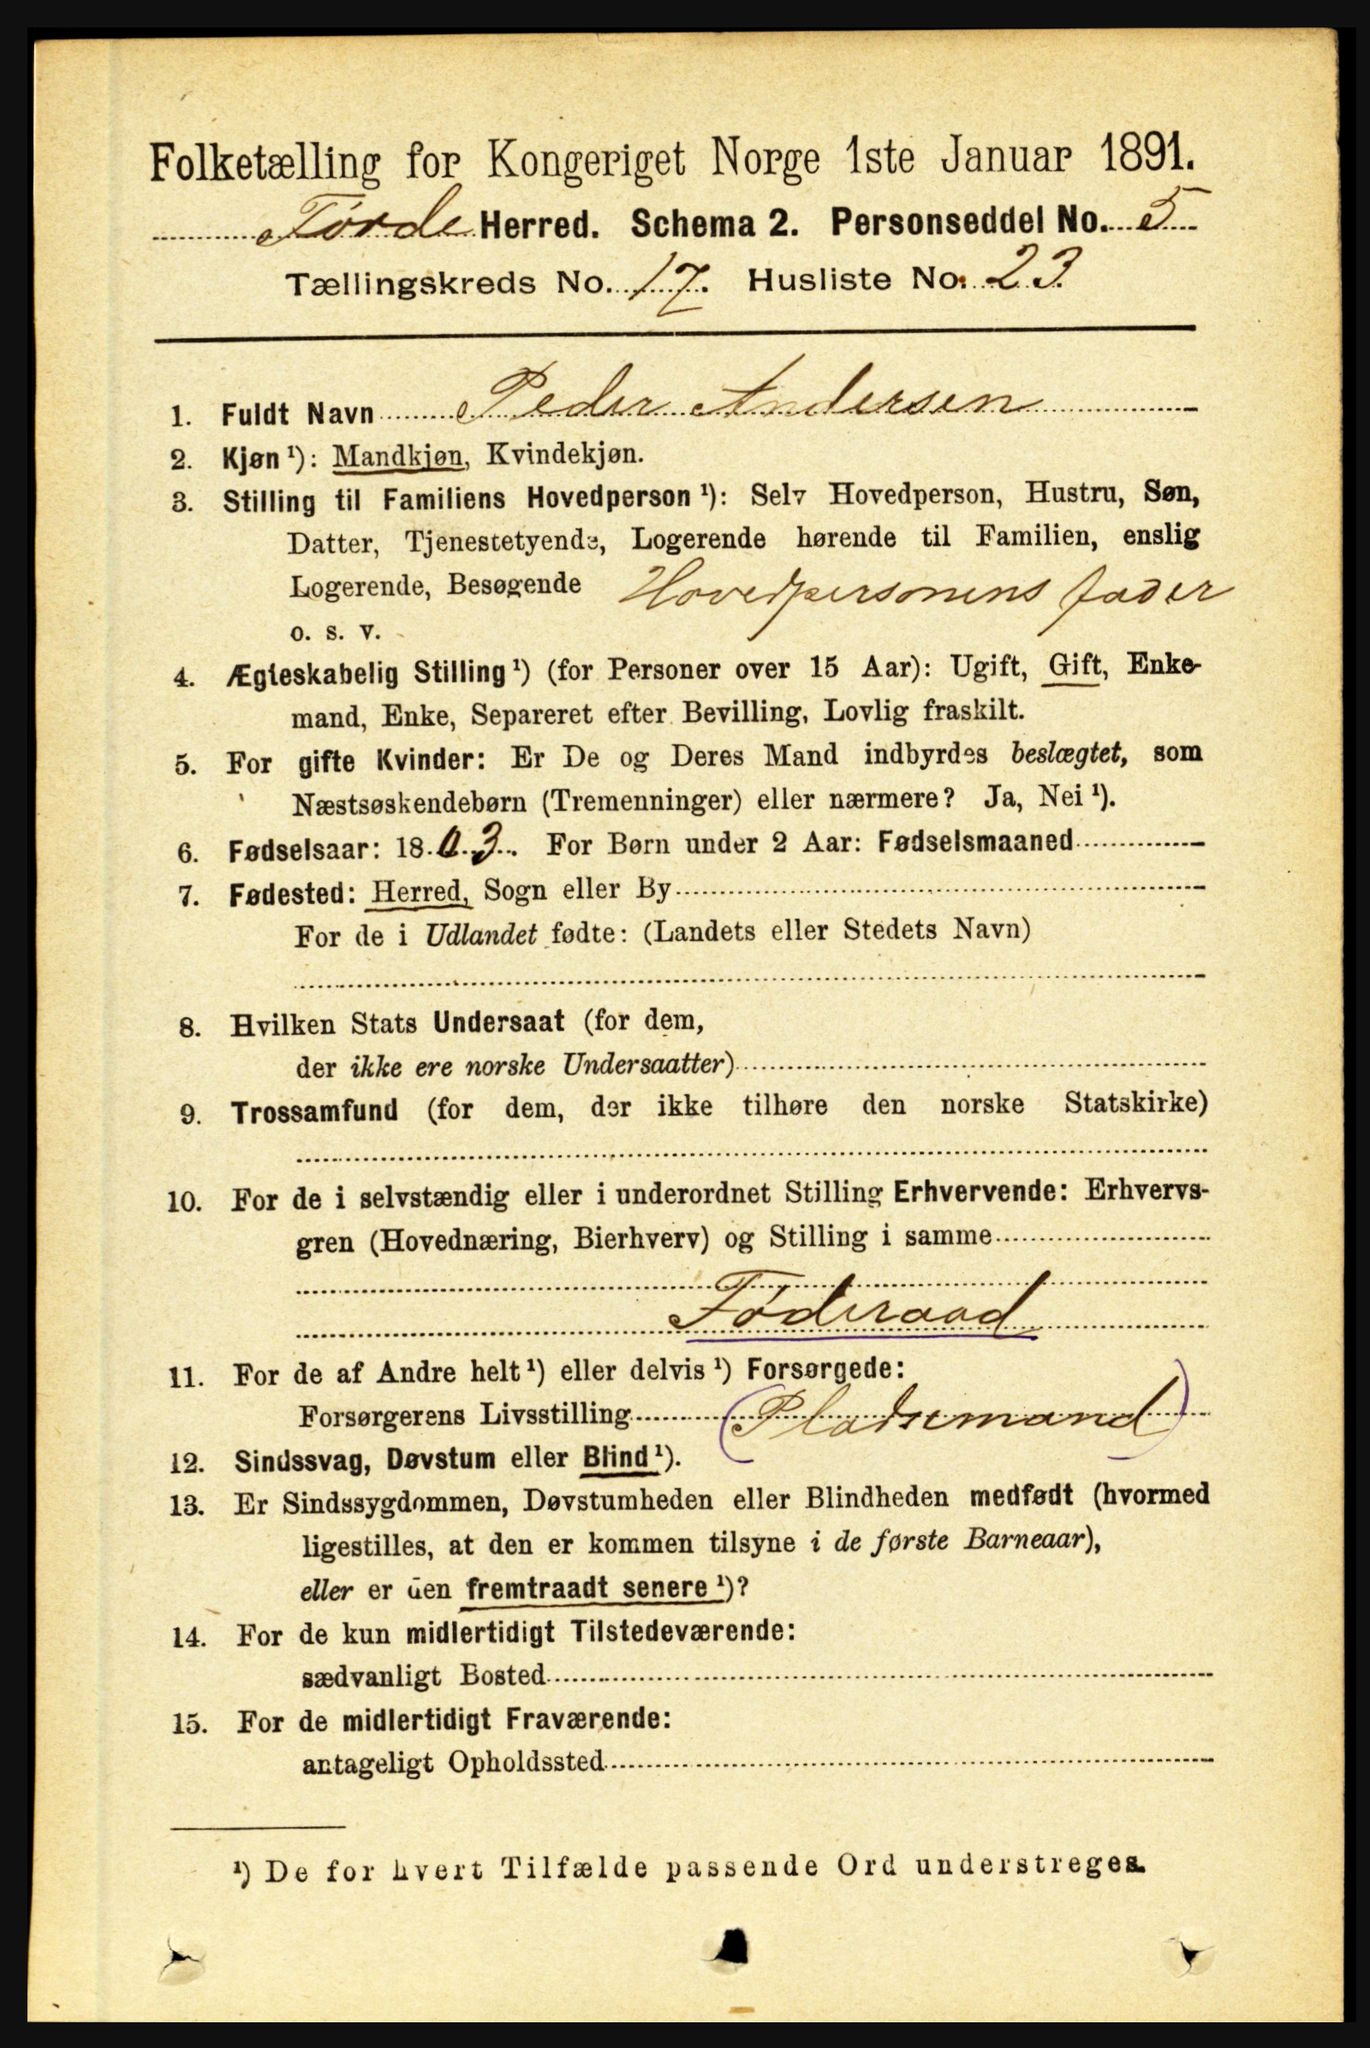 Folketælling for Kongeriget Norge 1ste Januar 1891.
Førde Herred. Schema 2. Personseddel No. 5
Tællingskreds No. 17. Husliste No. 23.
1. Fuldt Navn Peder Andersen
2. Kjøn ¹): Mandkjøn, Kvindekjøn.
3. Stilling til Familiens Hovedperson ¹): Selv Hovedperson, Hustru, Søn,
Datter, Tjenestetyende, Logerende hørende til Familien, enslig
Logerende, Besøgende Hovedpersonens fader
o. s. v.
4. Ægteskabelig Stilling ¹) (for Personer over 15 Aar): Ugift, Gift, Enke-
mand, Enke, Separeret efter Bevilling, Lovlig fraskilt.
5. For gifte Kvinder: Er De og Deres Mand indbyrdes beslægtet, som
Næstsøskendebørn (Tremenninger) eller nærmere? Ja, Nei ¹).
6. Fødselsaar: 1803. For Børn under 2 Aar: Fødselsmaaned
7. Fødested: Herred, Sogn eller By
For de i Udlandet fødte: (Landets eller Stedets Navn)
8. Hvilken Stats Undersaat (for dem,
der ikke ere norske Undersaatter)
9. Trossamfund (for dem, der ikke tilhøre den norske Statskirke)
10. For de i selvstændig eller i underordnet Stilling Erhvervende: Erhvervs-
gren (Hovednæring, Bierhverv) og Stilling i samme
Føderaad
11. For de af Andre helt ¹) eller delvis ¹) Forsørgede:
Forsørgerens Livsstilling (Pladsemand)
12. Sindssvag, Døvstum eller Blind ¹).
13. Er Sindssygdommen, Døvstumheden eller Blindheden medfødt (hvormed
ligestilles, at den er kommen tilsyne i de første Barneaar),
eller er den fremtraadt senere ¹)?
14. For de kun midlertidigt Tilstedeværende:
sædvanligt Bosted
15. For de midlertidigt Fraværende:
antageligt Opholdssted
¹) De for hvert Tilfælde passende Ord understreges.